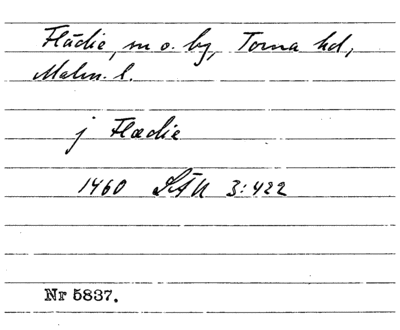 Flädie, sn o. by, Torna hd,
Malm. l.
j Flædie
1460 LÄU 3:422
Nr 5837.